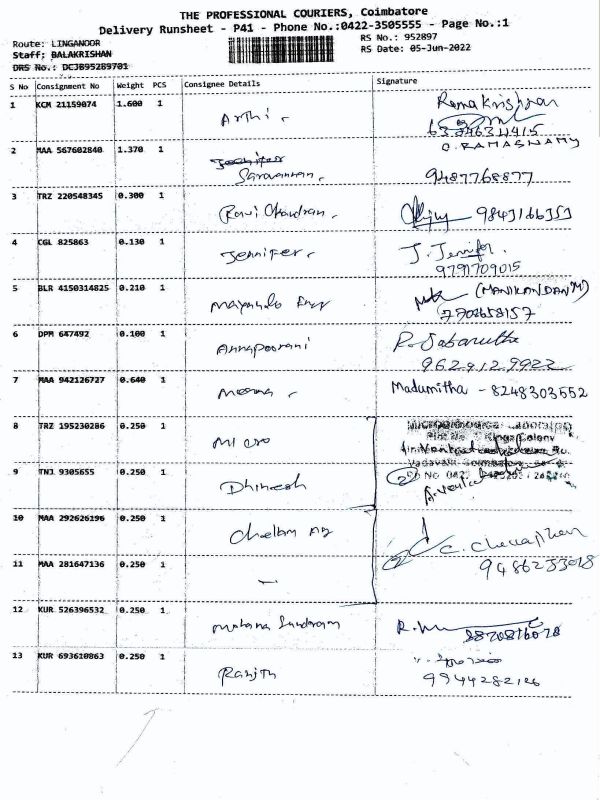 THE PROFESSIONAL COURIERS, Coimbatore
Delivery Runsheet - P41 - Phone No.:0422-3505555 - Page No.:1
Route: LINGANOOR
RS No.: 952897
Staff: BALAKRISHAN
RS Date: 05-Jun-2022
DRS No.: DCJB95289701
S No Consignment No Weight PCS Consignee Details Signature
1 KCM 21159074 1.600 1 Arthi Ramakrishnan
2 MAA 567602840 1.370 1 Jennifer O. RAMASWAMY
Saravanan 9487768877
3 TRZ 220548345 0.300 1 Ravi Chandran 9843166353
4 CGL 825863 0.130 1 Jennifer J. Jennifer.
9791709015
5 BLR 4150314825 0.210 1 (MANIKANDAN M)
7708658157
6 DPM 647492 0.100 1 Annapoorani
9629129922
7 MAA 942126727 0.640 1 Meena Madumitha - 8248303552
8 TRZ 195230286 0.250 1 Micro
9 TNJ 9305655 0.250 1 Dhinesh
10 MAA 292626196 0.250 1
11 MAA 281647136 0.250 1 9486233018
12 KUR 526396532 0.250 1
13 KUR 693610863 0.250 1 Ranjith
9944282126